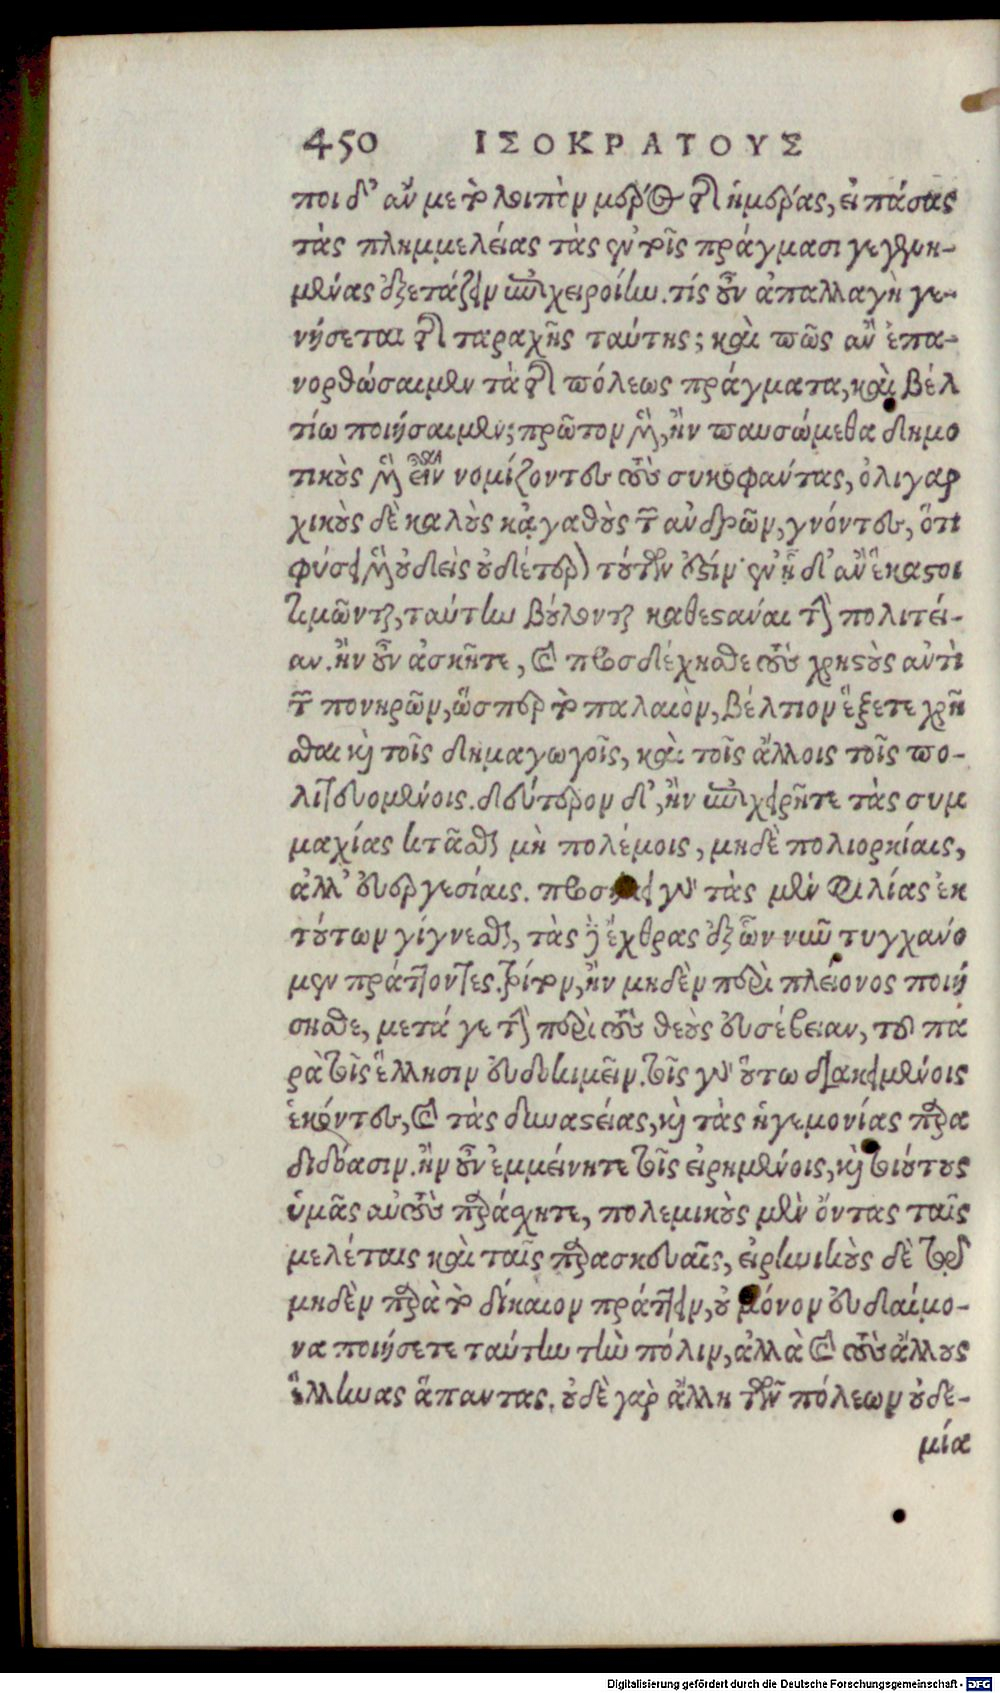 450 ΙΣΟΚΡΑΤΟΥΣ
ποι δ' ἄν με τὸ λοιπὸν μέρος τῆς ἡμέρας, εἰ πάσας
τὰς πλημμελείας τὰς ἐν τοῖς πράγμασι γεγενη-
μένας ἐξετάζειν ἐπιχειροίην. τίς οὖν ἀπαλλαγὴ γε-
νήσεται τῆς ταραχῆς ταύτης; καὶ πῶς ἂν ἐπα-
νορθώσαιμεν τὰ τῆς πόλεως πράγματα, καὶ βέλ
τίω ποιήσαιμεν; πρῶτον μὲν, ἢν παυσώμεθα δημο
τικοὺς μὲν εἶναι νομίζοντες τοὺς συκοφάντας, ὀλιγαρ
χικοὺς δὲ καλοὺς κἀγαθοὺς τῶν ἀνδρῶν, γνόντες, ὅτι
φύσει μὲν οὐδεὶς οὐδέτερον τούτων ἐστίν· ἐν ᾗ δ' ἂν ἕκαστοι
τιμῶνται, ταύτην βούλονται καθεστάναι τὴν πολιτεί-
αν. ἢν οὖν ἀσκῆτε, καὶ προσδέχησθε τοὺς χρηστοὺς ἀντὶ
τῶν πονηρῶν, ὥσπερ τὸ παλαιὸν, βέλτιον ἕξετε χρῆ
σθαι καὶ τοῖς δημαγωγοῖς, καὶ τοῖς ἄλλοις τοῖς πο-
λιτευομένοις. δεύτερον δ', ἢν ἐπιχειρῆτε τὰς συμ
μαχίας κτᾶσθαι μὴ πολέμοις, μηδὲ πολιορκίαις,
ἀλλ' εὐεργεσίαις. προσήκει γὰρ τὰς μὲν φιλίας ἐκ
τούτων γίγνεσθαι, τὰς δὲ ἔχθρας ἐξ ὧν νῦν τυγχάνο
μεν πράττοντες. τρίτον, ἢν μηδὲν περὶ πλείονος ποιή
σησθε, μετά γε τὴν περὶ τοὺς θεοὺς εὐσέβειαν, τοῦ πα
ρὰ τοῖς ἕλλησιν εὐδοκιμεῖν. τοῖς γὰρ οὕτω διακειμένοις
ἑκόντες, καὶ τὰς δυναστείας, καὶ τὰς ἡγεμονίας παρα
διδόασιν. ἢν οὖν ἐμμείνητε τοῖς εἰρημένοις, καὶ τοιούτους
ὑμᾶς αὐτοὺς παράσχητε, πολεμικοὺς μὲν ὄντας ταῖς
μελέταις καὶ ταῖς παρασκευαῖς, εἰρηνικοὺς δὲ τῷ
μηδὲν παρὰ τὸ δίκαιον πράττειν, οὐ μόνον εὐδαίμο-
να ποιήσετε ταύτην τὴν πόλιν, ἀλλὰ καὶ τοὺς ἄλλους
ἕλληνας ἅπαντας. οὐδὲ γὰρ ἄλλη τῶν πόλεων οὐδε-
μία
Digitalisierung gefördert durch die Deutsche Forschungsgemeinschaft - DFG